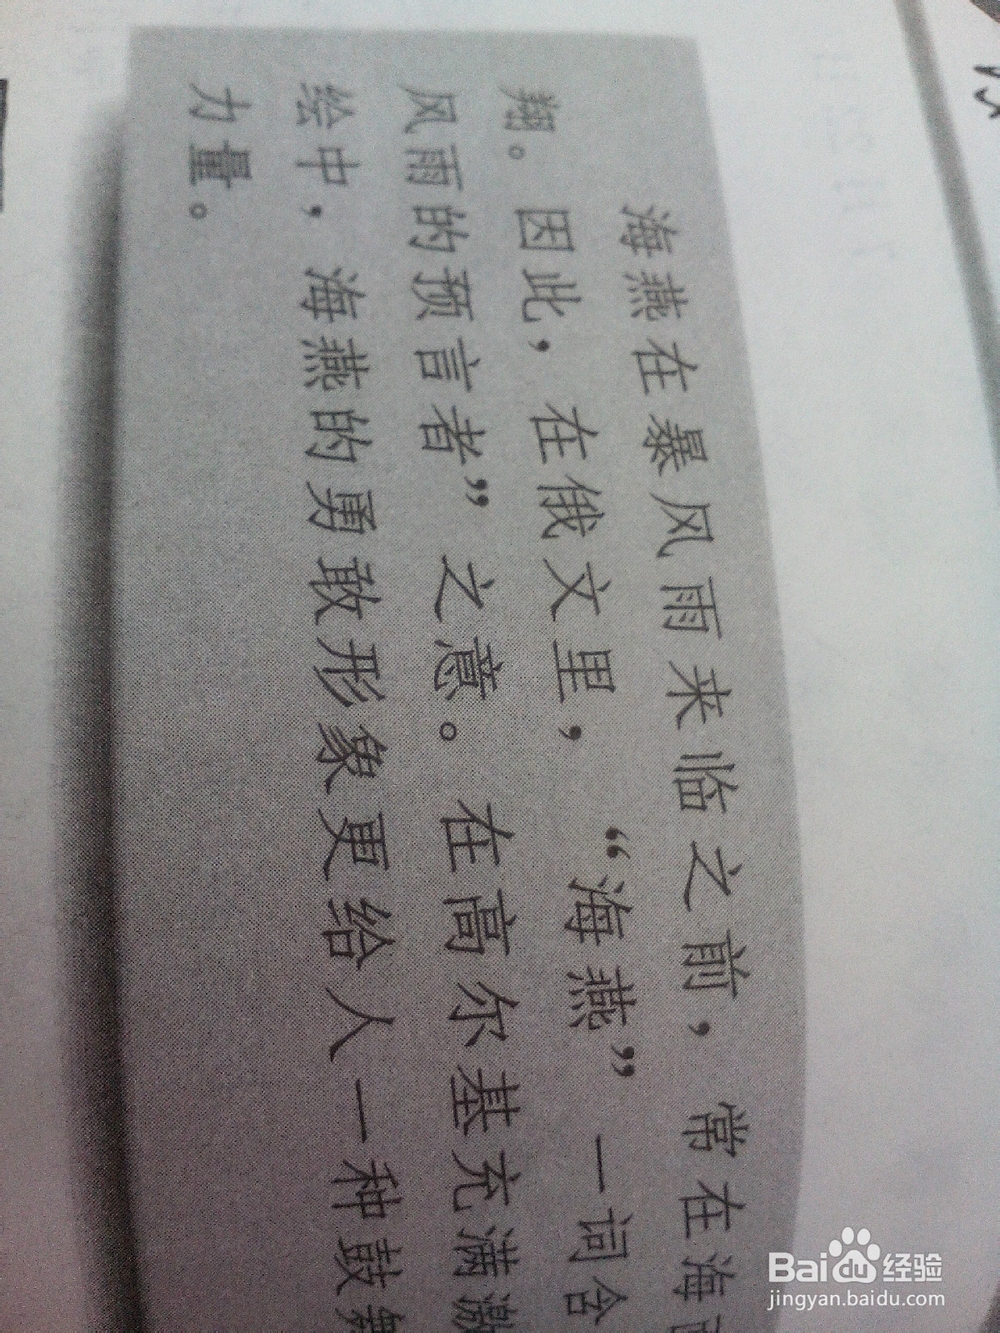 海燕在暴风雨来临之前，常在海
翔。因此，在俄文里，“海燕”一词含
风雨的预言者”之意。在高尔基充满激
绘中，海燕的勇敢形象更给人一种鼓舞
力量。
Baidu经验
jingyan.baidu.com